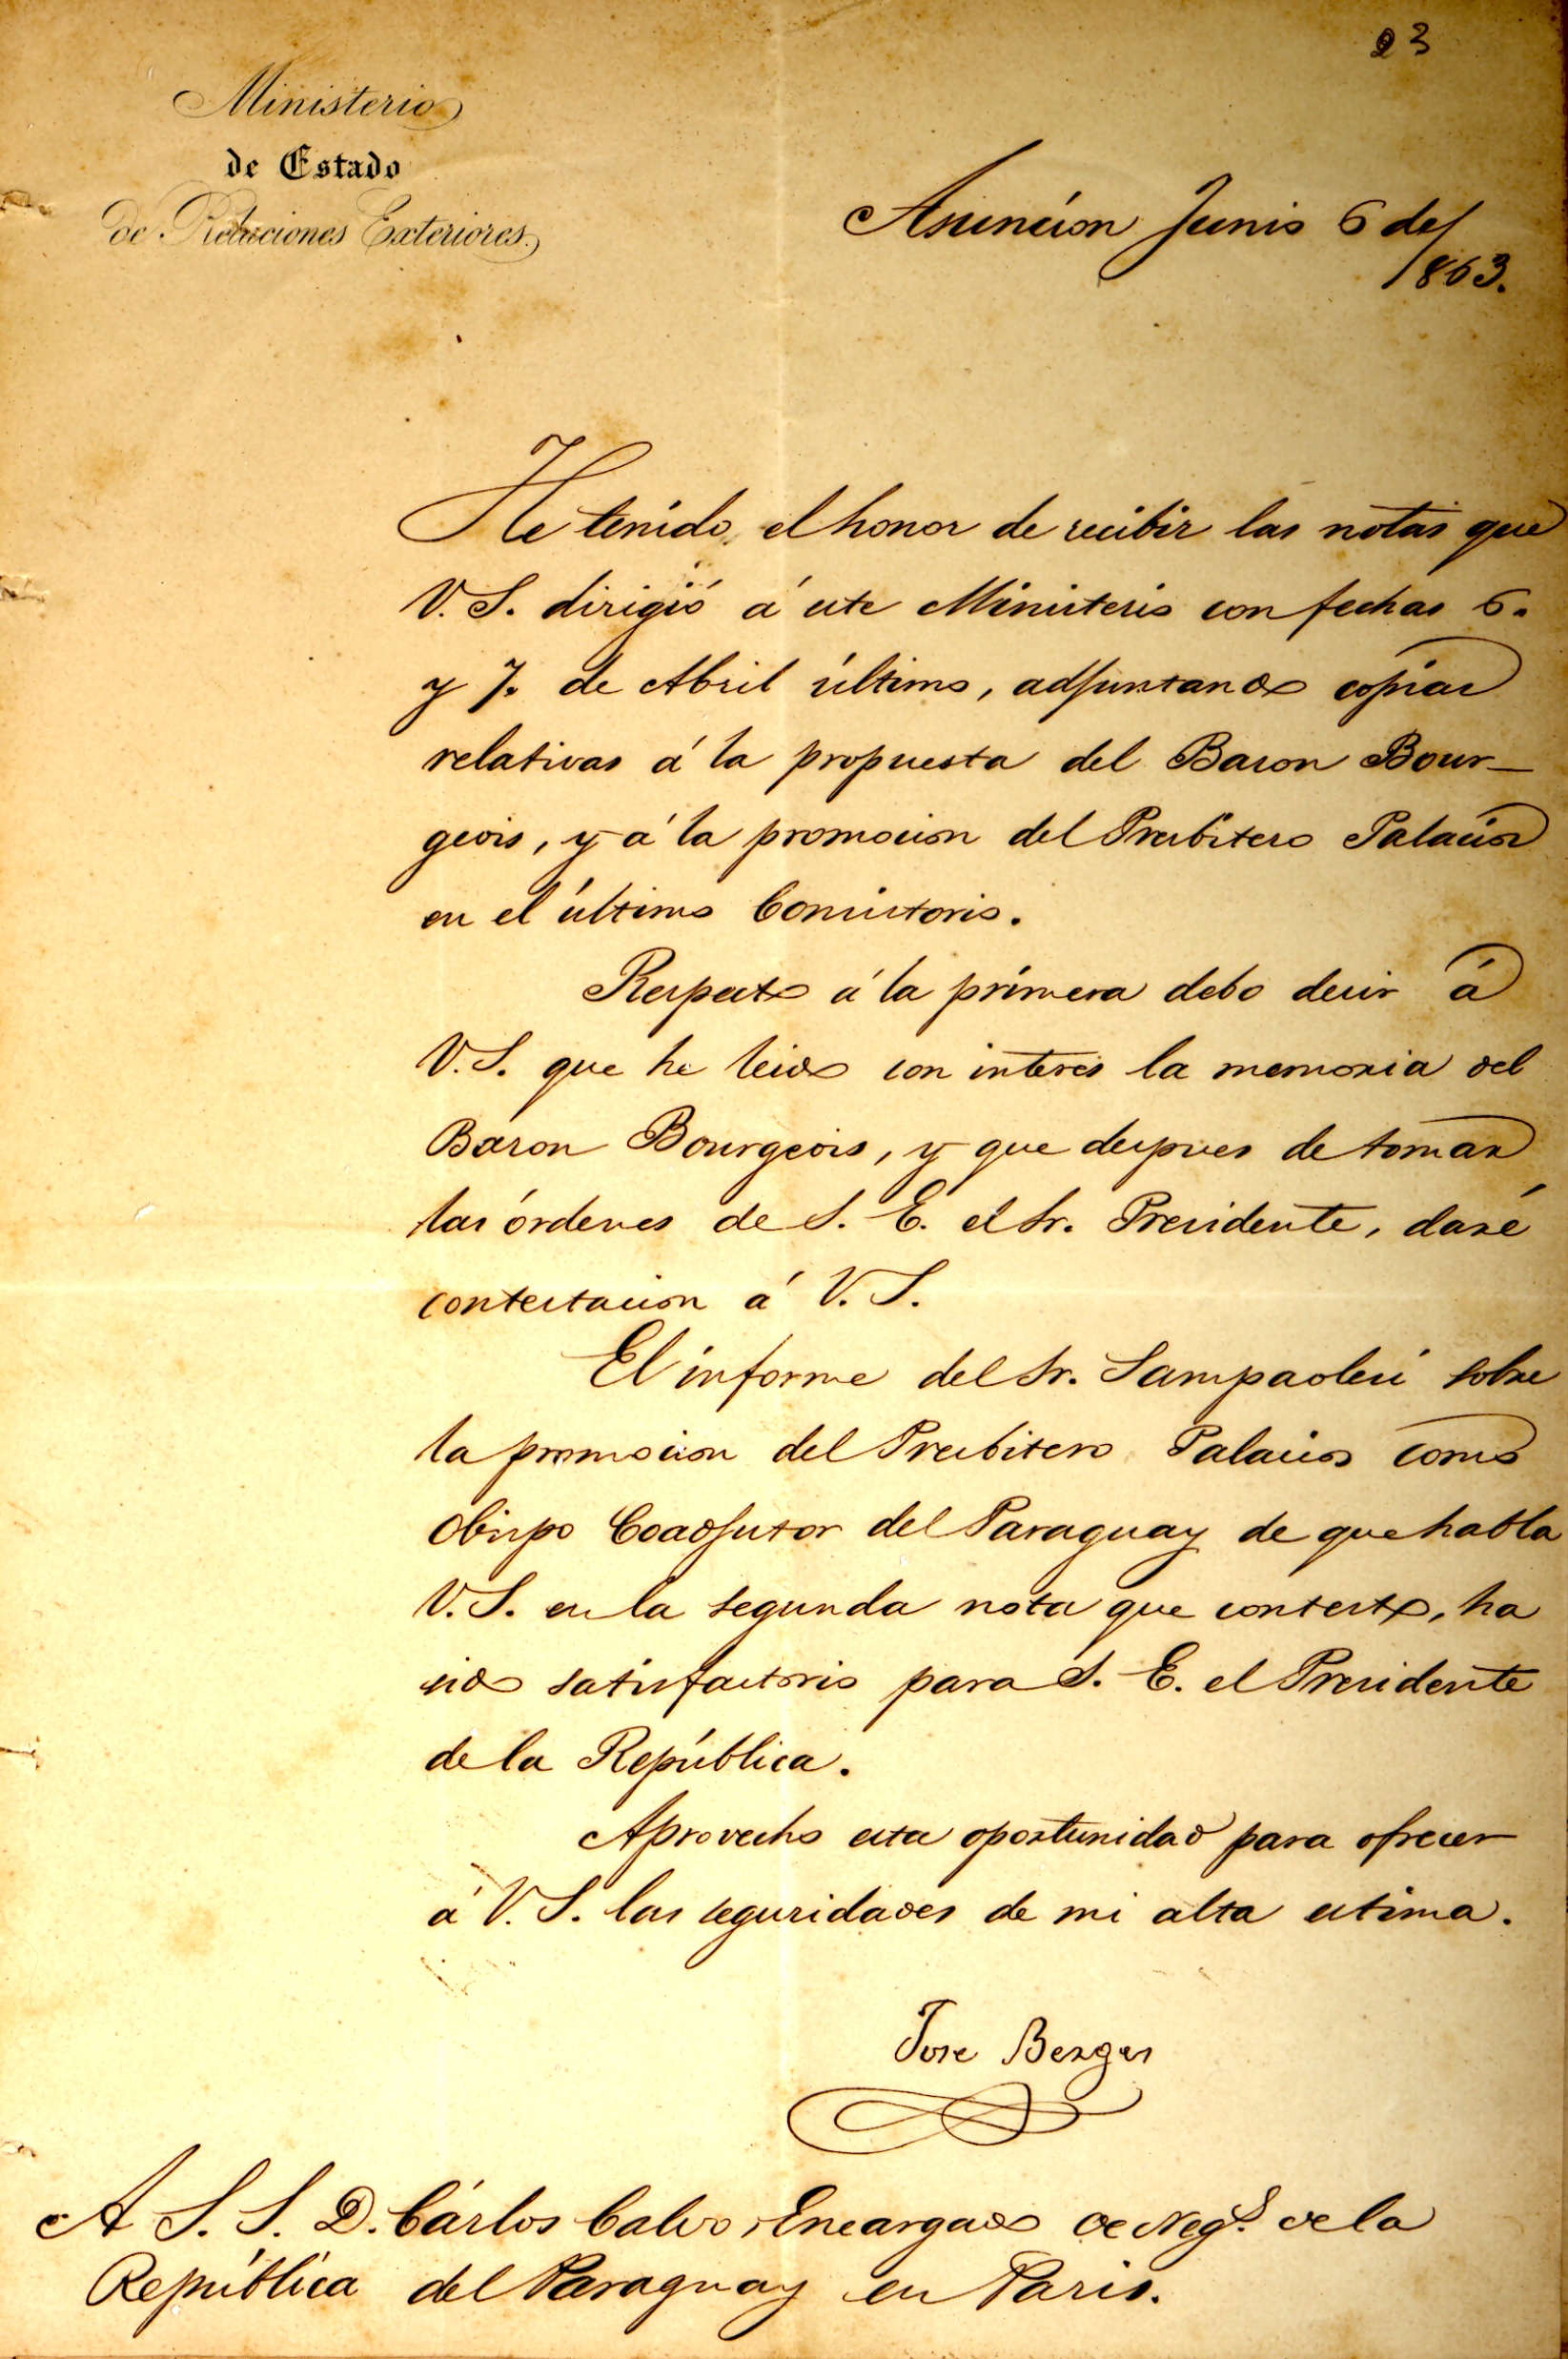 23
Ministerio
de Estado
de Relaciones Exteriores.
Asuncion Junio 6 de
1863.
He tenido el honor de recibir las notas que
V. S. dirigió á este Ministerio con fechas 6.
y 7. de Abril último, adjuntando copias
relativas á la propuesta del Baron Bour-
geois, y á la promocion del Presbitero Palacios
en el último Consistorio.
Respecto á la primera debo decir á
V. S. que he leido con interés la memoria del
Baron Bourgeois, y que despues de tomar
las órdenes de S. E. el Sr. Presidente, daré
contestacion á V. S.
El informe del Sr. Sampaolesi sobre
la promocion del Presbitero Palacios como
Obispo Coadjutor del Paraguay de que habla
V. S. en la segunda nota que contesto, ha
sido satisfactorio para S. E. el Presidente
de la República.
Aprovecho esta oportunidad para ofrecer
á V. S. las seguridades de mi alta estima.
Jose Berges
A S. S. D. Cárlos Calvo, Encargado de Negs. de la
República del Paraguay en Paris.